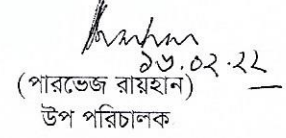 ১৬.০২.২২
(পারভেজ রায়হান)
উপ পরিচালক